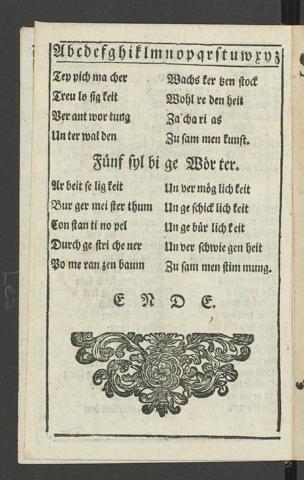 Abcdefghiklmnopqrstuvwxyz
Tep pich ma cher
Treu lo sig keit
Ver ant wor tung
Un ter wal den
Wachs ker tzen stock
Wohl re den heit
Za cha ri as
Zu sam men kunst.
Fünf syl bi ge Wör ter.
Ar beit se lig keit
Bur ger mei ster thum
Con stan ti no pel
Durch ge stri che ner
Po me ran zen baum
Un ver mög lich keit
Un ge schick lich keit
Un ge bür lich keit
Un ver schwie gen heit
Zu sam men stim mung.
E N D E.